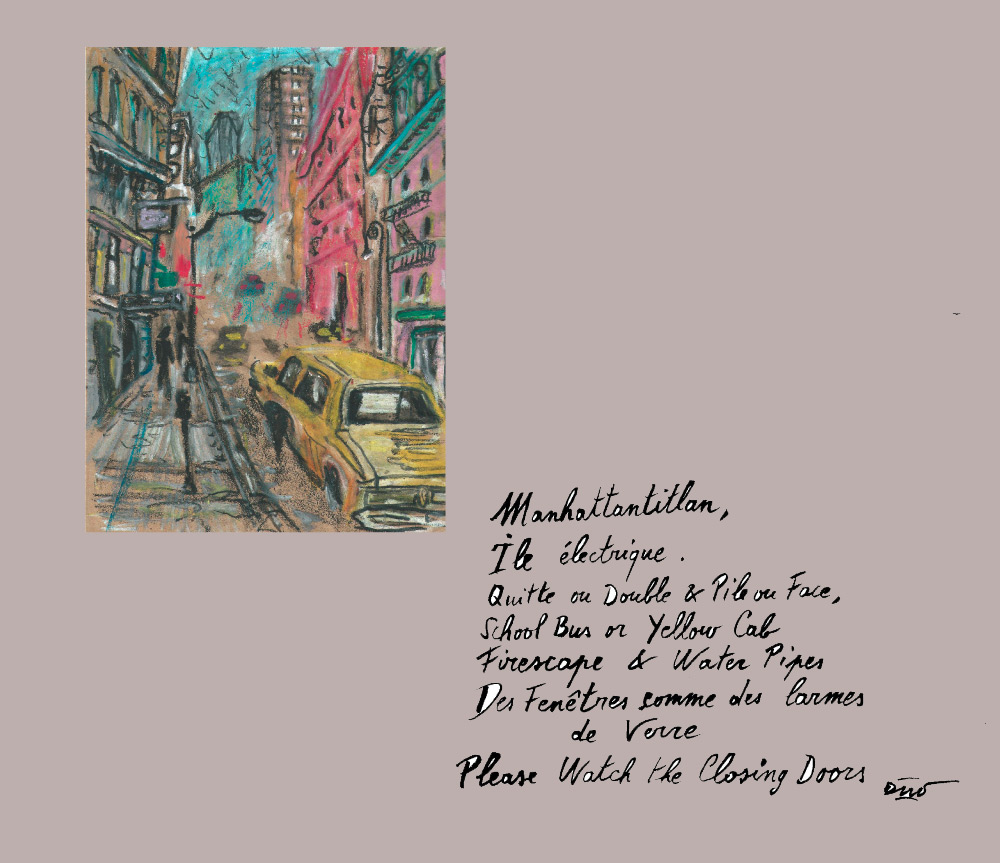 Manhattantitlan,
Île électrique.
Quitte ou Double & Pile ou Face,
School Bus or Yellow Cab
Firescape & Water Pipes
Des Fenêtres comme des larmes
de Verre
Please Watch the Closing Doors